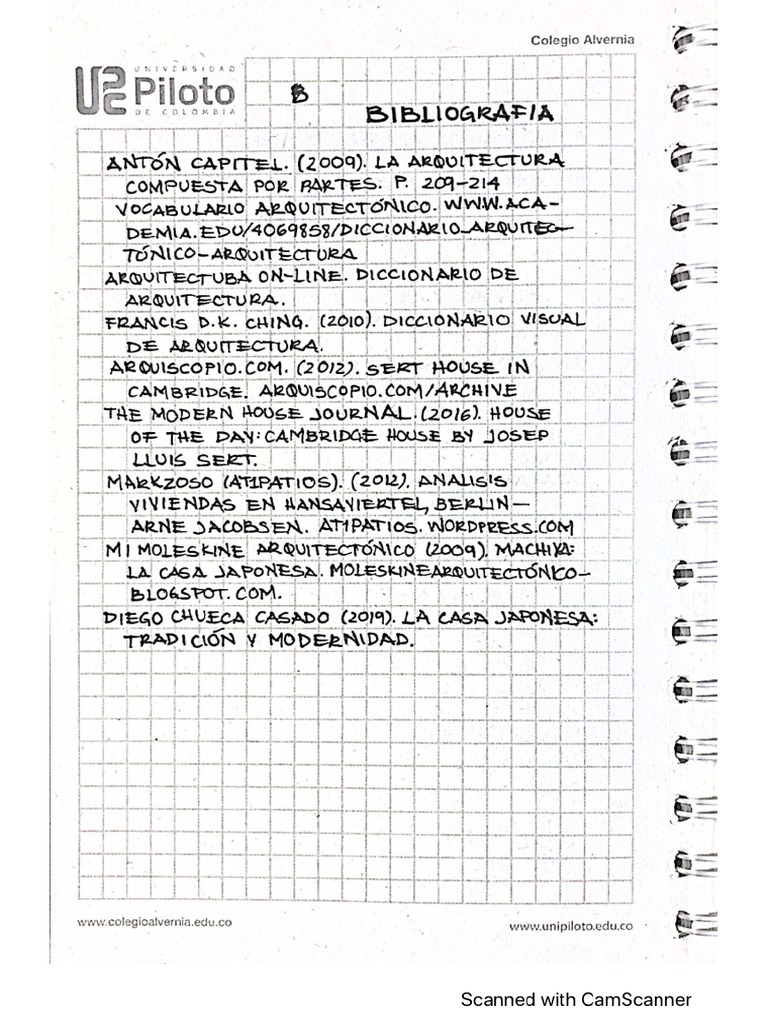 Colegio Alvernia
UNIVERSIDAD
Piloto
DE COLOMBIA
B
BIBLIOGRAFIA
ANTÓN CAPITEL. (2009). LA ARQUITECTURA
COMPUESTA POR PARTES. P. 209-214
VOCABULARIO ARQUITECTÓNICO. WWW.ACA-
DEMIA.EDU/4069858/DICCIONARIO_ARQUITEC-
TÓNICO-ARQUITECTURA
ARQUITECTURA ON-LINE. DICCIONARIO DE
ARQUITECTURA.
FRANCIS D.K. CHING. (2010). DICCIONARIO VISUAL
DE ARQUITECTURA.
ARQUISCOPIO.COM. (2012). SERT HOUSE IN
CAMBRIDGE. ARQUISCOPIO.COM/ARCHIVE
THE MODERN HOUSE JOURNAL. (2016). HOUSE
OF THE DAY: CAMBRIDGE HOUSE BY JOSEP
LLUIS SERT.
MARKZOSO (AT1PATIOS). (2012). ANALISIS
VIVIENDAS EN HANSAVIERTEL, BERLIN-
ARNE JACOBSEN. AT1PATIOS.WORDPRESS.COM
MI MOLESKINE ARQUITECTÓNICO (2009). MACHIYA:
LA CASA JAPONESA. MOLESKINEARQUITECTÓNICO-
BLOGSPOT.COM.
DIEGO CHUECA CASADO (2019). LA CASA JAPONESA:
TRADICIÓN Y MODERNIDAD.
www.colegioalvernia.edu.co
www.unipiloto.edu.co
Scanned with CamScanner